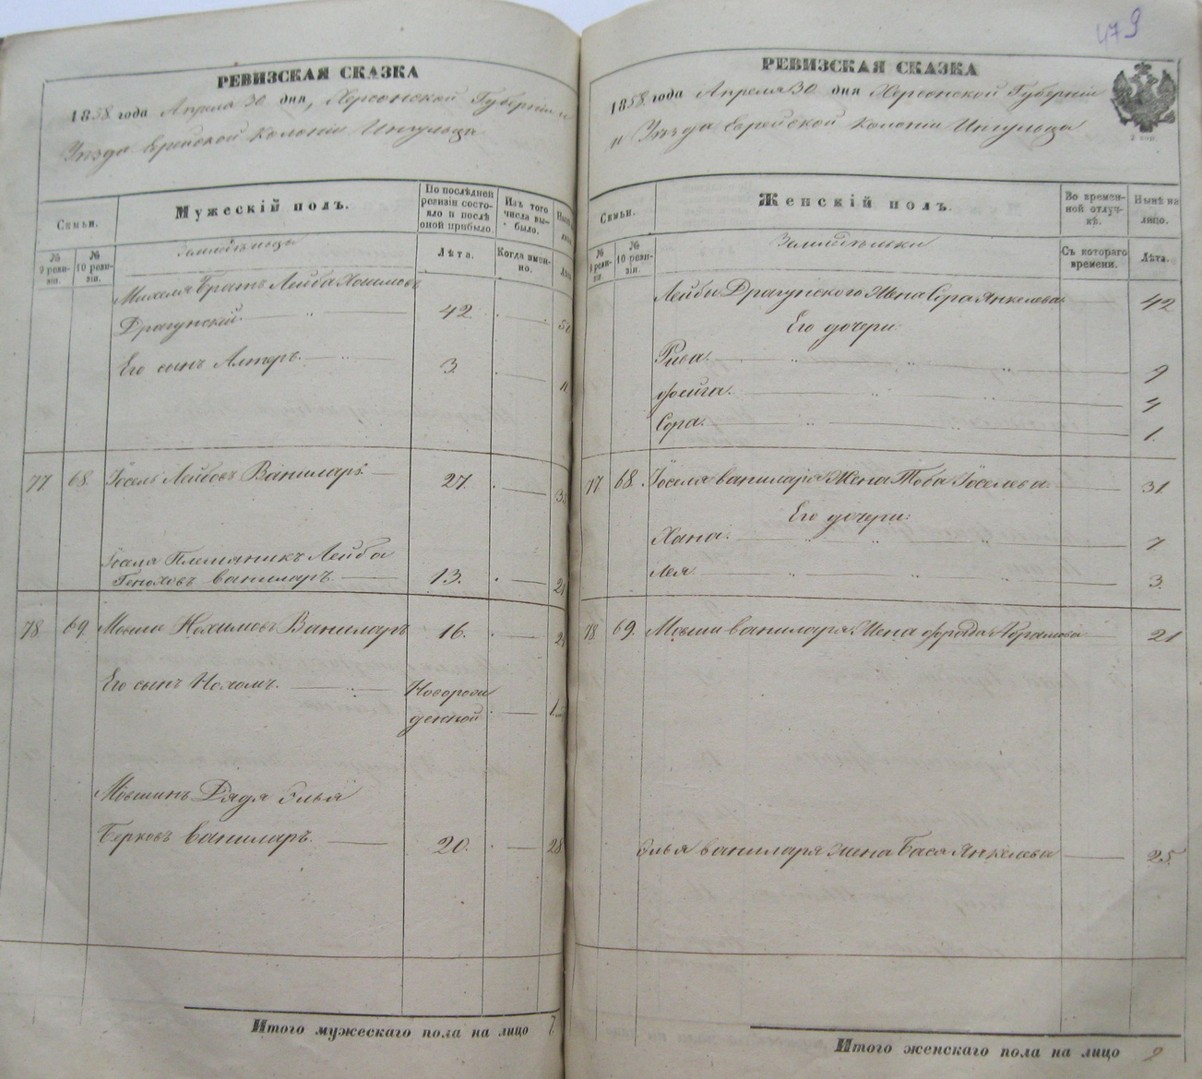 РЕВИЗСКАЯ СКАЗКА
1858 года Апреля 30 дня, Херсонской Губерніи и
Уезда Еврейской Колоніи Ингульца
Семьи.
Мужескій полъ.
По послѣдней ревизіи состояло и послѣ оной прибыло
Изъ того числа выбыло.
№ 9 ревизіи.
№ 10 ревизіи.
Земледѣльцы
Лѣта.
Когда именно.
Михеля Братъ Лейба Хаимовъ
Драгунскій. 42
Его сынъ Алтеръ. 3
77 68 Іосель Лейбовъ Ваниларъ. 27.
Іоселя Племяникъ Лейба
Геноховъ Ваниларъ. 13.
78. 69. Мовша Нохимовъ Ваниларъ 16.
Его сынъ Нохомъ. Новорож
денной
Мовшинъ Дядя Элья
Берковъ Ваниларъ. 20. 28
Итого мужескаго пола на лицо 7.
479
РЕВИЗСКАЯ СКАЗКА
1858 года Апреля 30 дня Херсонской Губерніи
и Уѣзда Еврейской Колоніи Ингульца
Семьи.
Женскій полъ.
Во временной отлучкѣ.
Нынѣ на лицо.
№ 9 ревизіи.
№ 10 ревизіи.
Земледѣльки
Съ котораго времени.
Лѣта.
Лейбы Драгунского Жена Сора Янкелева 42
Его дочери:
Рива. 9
Фейга. 4
Сора. 1.
77 68 Іоселя Ванилара Жена Тоба Іоселева 31.
Его дочери:
Хана. 7
Лея. 3.
78 69. Мовши Ванилара Жена Фрейда Абрамова 21
Элья Ваниларя жена Бася Янкелева 25.
Итого женскаго пола на лицо 9